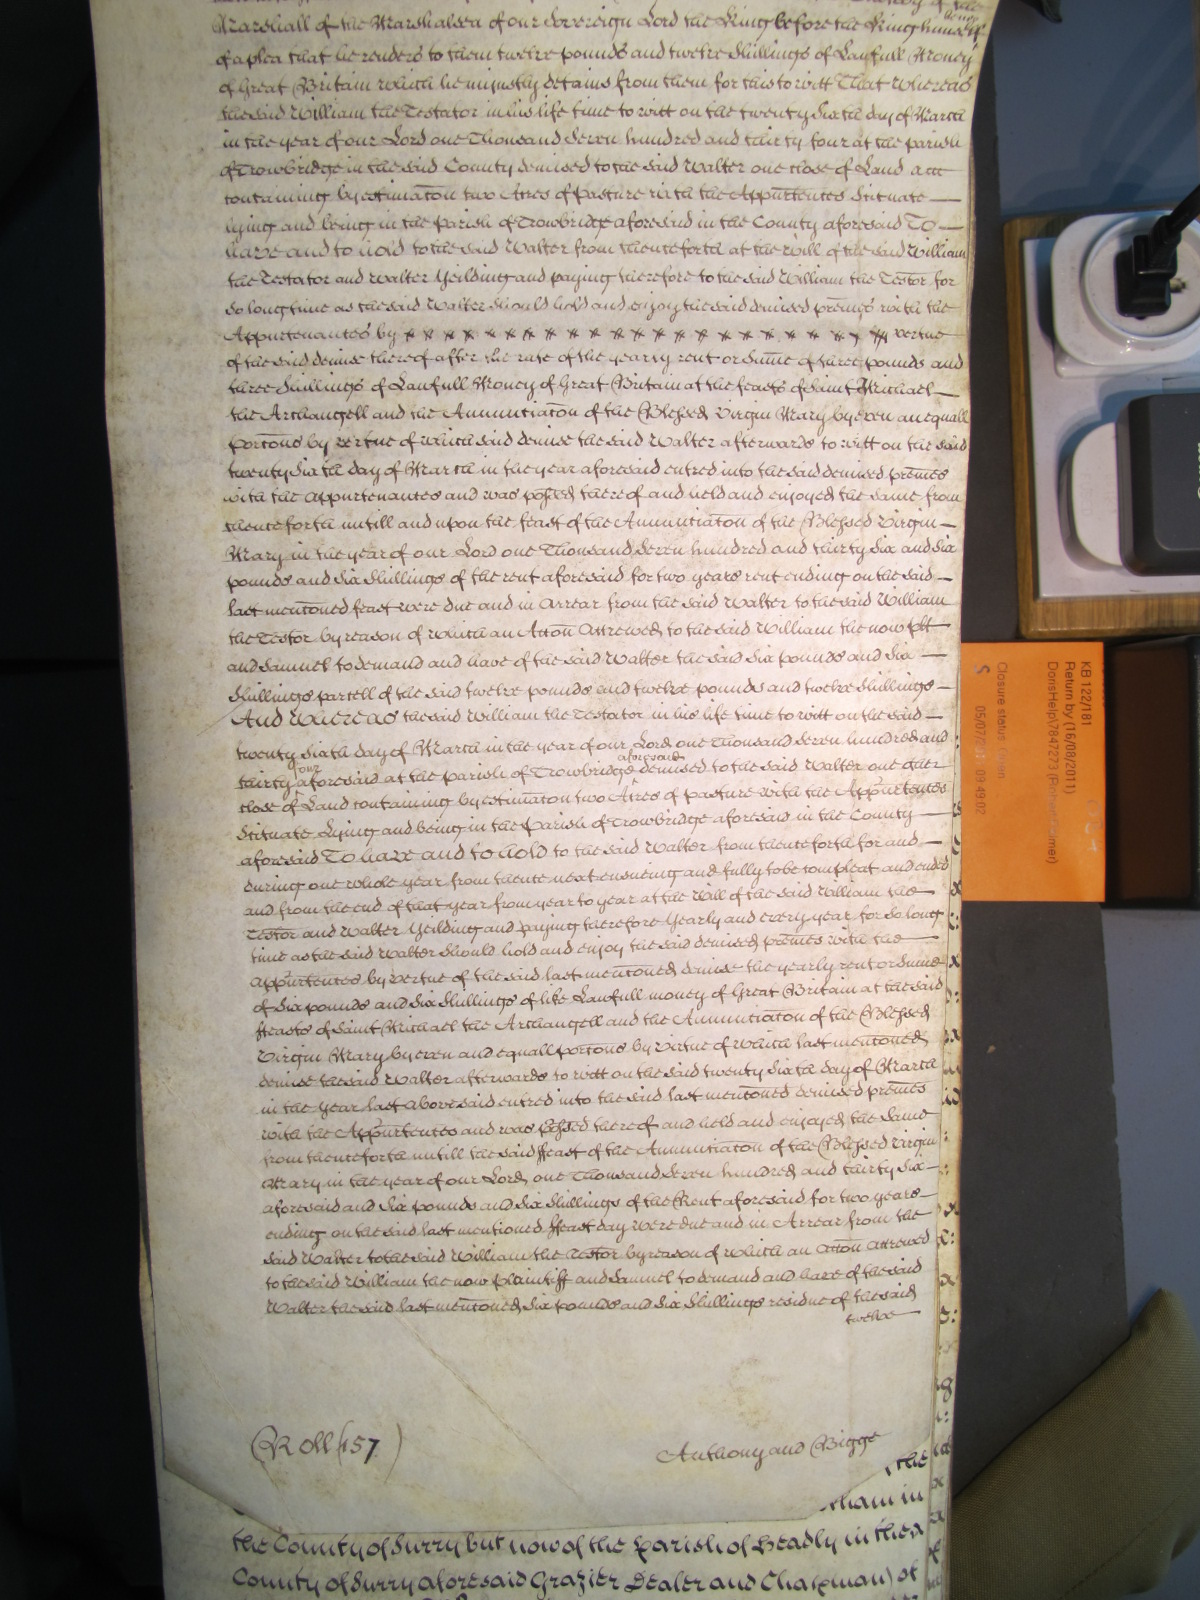 Marshall of the Marshalsea of our Sovereign Lord the King before the King himself
being
of a plea that he renders to them twelve pounds and twelve shillings of Lawfull Money
of Great Britain which he unjustly detains from them for this to witt That Whereas
the said William the Testator in his life time to witt on the twenty sixth day of March
in the year of our Lord one Thousand seven hundred and thirty four at the parish
of Trowbridge in the said County demised to the said Walter one close of Land
containing by estimacon two Acres of Pasture with the Appurtences Scituate
lying and being in the Parish of Trowbridge aforesaid in the County aforesaid To
have and to hold to the said Walter from thenceforth at the will of the said William
the Testator and Walter Yeilding and paying therefore to the said William the Testor for
so long time as the said Walter should hold and enjoy the said demised premes with the
Appurtenances by vertue
of the said demise thereof after the rate of the yearly rent or sume of three pounds and
three shillings of Lawfull Money of Great Britain at the feasts of Saint Michael
the Archangell and the Annunciacon of the Blessed Virgin Mary by even an equall
porcons by vertue of which said demise the said Walter afterwards to witt on the said
twenty sixth day of March in the year aforesaid entred into the said demised premes
with the appurtenances and was possed thereof and held and enjoyed the same from
thenceforth untill and upon the feast of the Annunciacon of the Blessed Virgin
Mary in the year of our Lord one Thousand seven hundred and thirty six and six
pounds and six shillings of the rent aforesaid for two years rent ending on the said
last mentoned feast were due and in arrear from the said Walter to the said William
the Testor by reason of which an Accon accrewed to the said William the now plt
and Samuel to demand and have of the said Walter the said six pounds and six
shillings parcell of the said twelve pounds and twelve pounds and twelve shillings
And Whereas the said William the Testator in his life time to witt on the said
twenty sixth day of March in the year of our Lord one Thousand seven hundred and
four aforesaid
thirty aforesaid at the parish of Trowbridge demised to the said Walter one other
close of Land containing by estimacon two Acres of pasture with the Appurtences
Scituate Lying and being in the Parish of Trowbridge aforesaid in the County
aforesaid To have and to hold to the said Walter from thenceforth for and
during one whole year from thence next ensueing and fully to be compleat and ended
and from the end of that year from year to year at the Will of the said William the
Testor and Walter Yeilding and paying therefore Yearly and every year for so long
time as the said Walter should hold and enjoy the said demised premes with the
appurtences by vertue of the said last mentoned demise the yearly rent or sume
of six pounds and six shillings of like Lawfull money of Great Britain at the said
ffeasts of Saint Michael the Archangell and the Annunciacon of the Blessed
Virgin Mary by even and equall porcons by virtue of which last mentoned
demise the said Walter afterwards to witt on the said twenty sixth day of March
in the year last abovesaid entred into the said last mentoned demised premes
with the Appurtences and was possed thereof and held and enjoyed the same
from thenceforth untill the said ffeast of the Annunciacon of the Blessed Virgin
Mary in the year of our Lord one Thousand seven hundred and thirty six
aforesaid and six pounds and six shillings of the Rent aforesaid for two years
ending on the said last mentioned ffeast day were due and in Arrear from the
said Walter to the said William the Testor by reason of which an accon accrewed
to the said William the now Plaintiff and Samuel to demand and have of the said
Walter the said last mentoned six pounds and six shillings residue of the said
twelve
(Roll 157)
Anthony and Bigge
the
in
the County of Surry but now of the Parish of Headly in the
County of Surry aforesaid Grazier Dealer and Chapman) of
KB 122/181
Return by (16/08/2011)
Closure status: Open